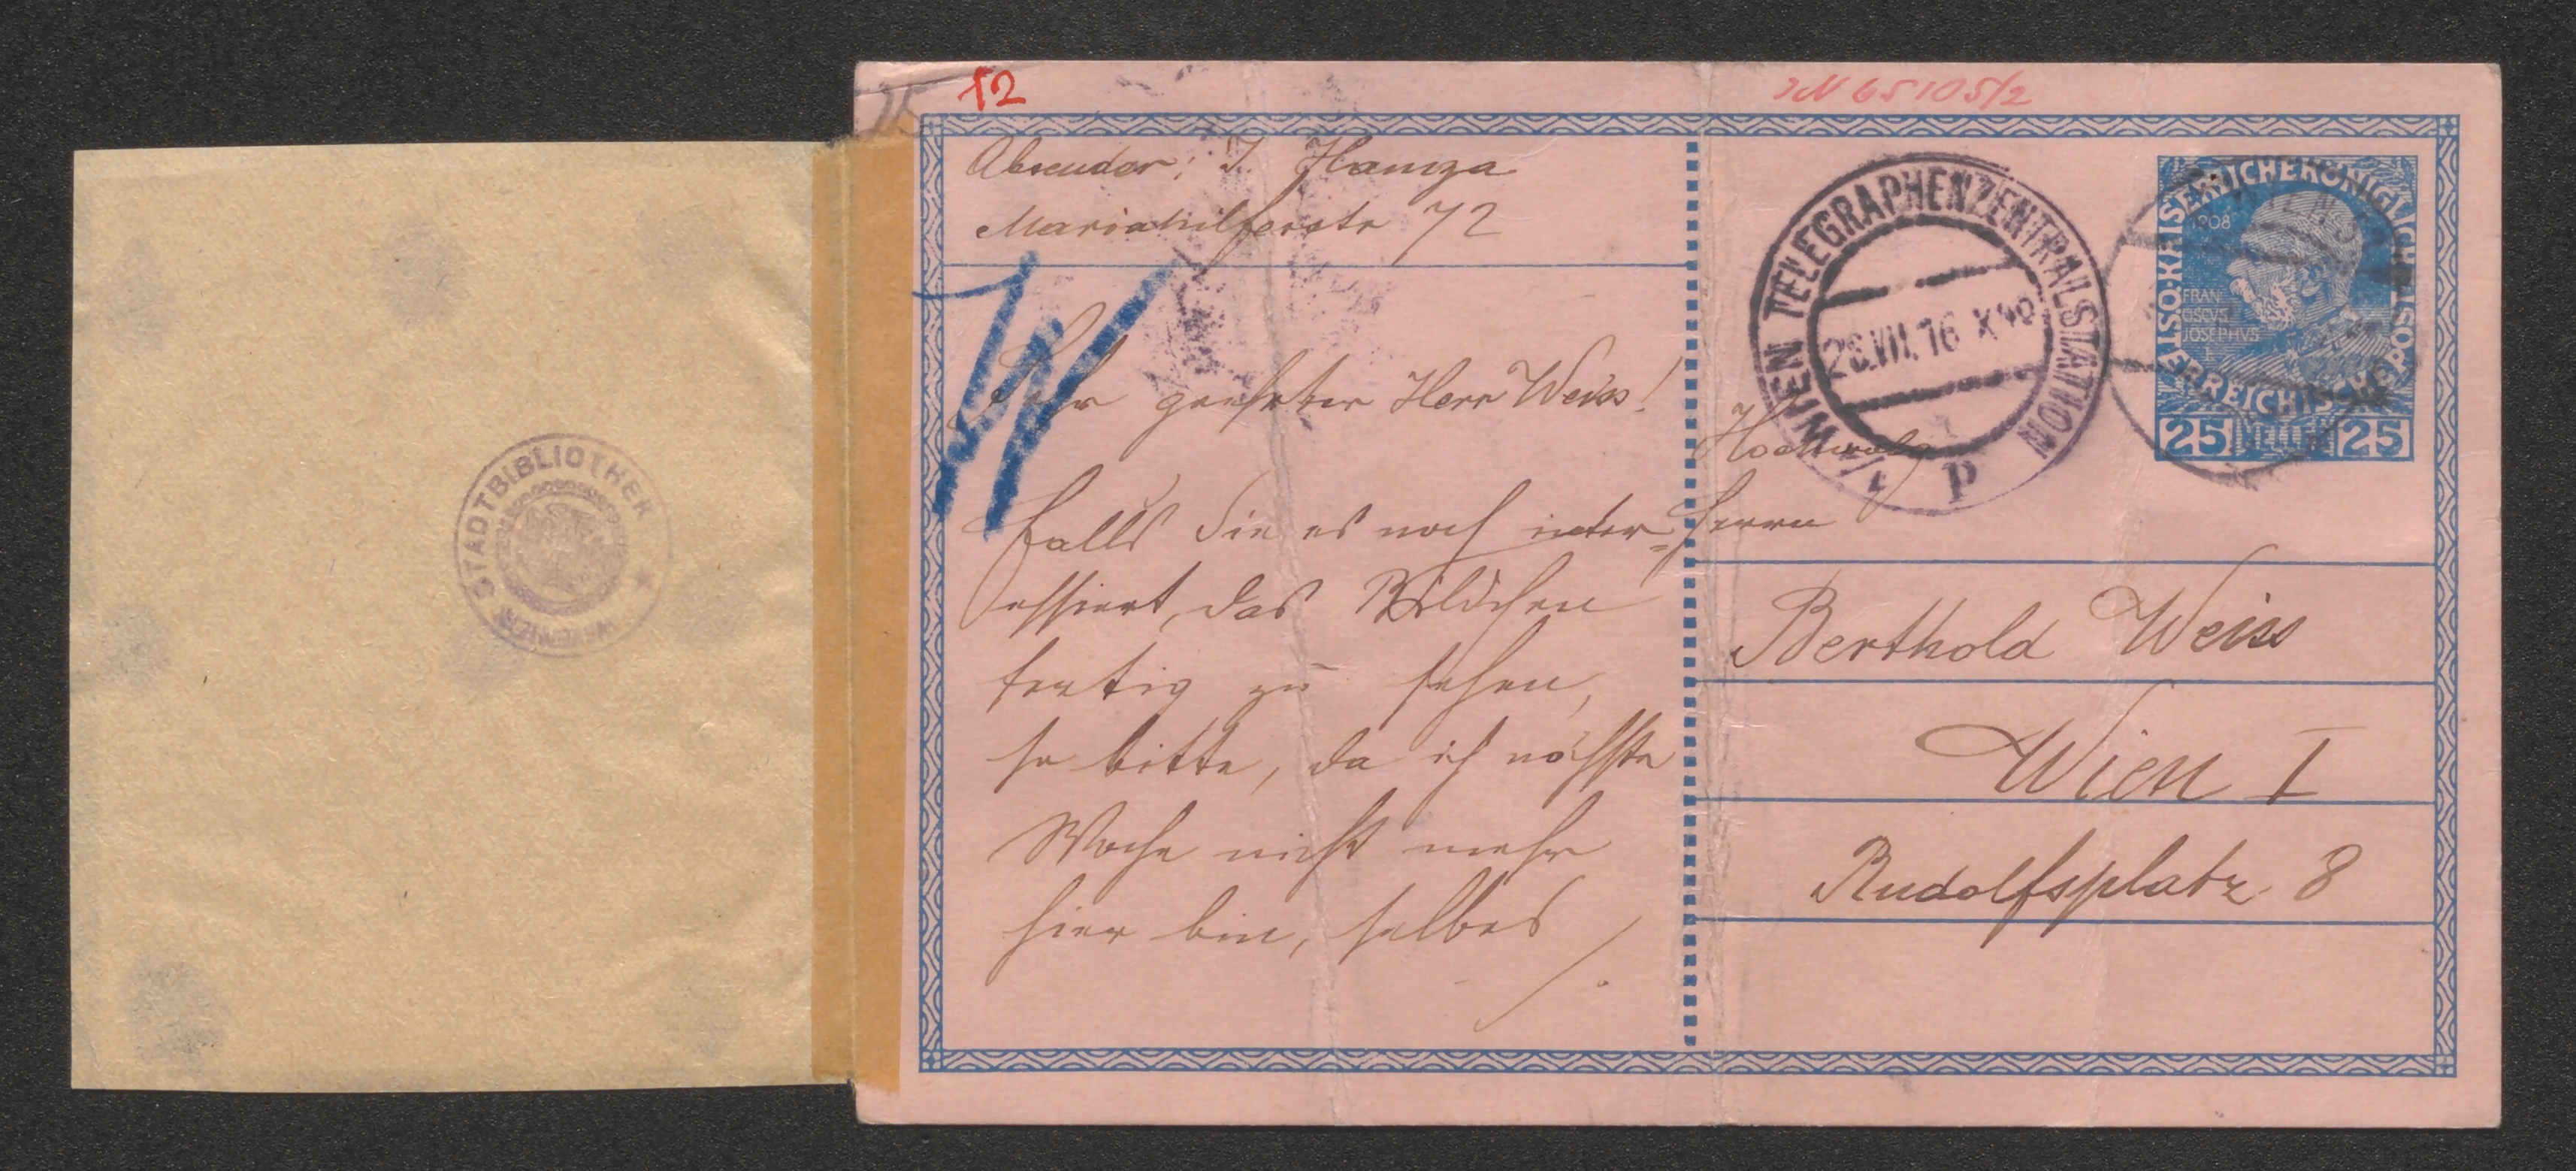 12
IN 65105/2
Absender: J. Hamza
Mariahilferstr 72
Sehr geehrter Herr Weiss!
Falls Sie es noch inter=
essiert, das Bildchen
fertig zu sehen,
so bitte, da ich nächste
Woche nicht mehr
hier bin, selbes
WIEN TELEGRAPHENZENTRALSTATION
28.VII.16 X
P
KAISERLICHEKÖNIGLICHE
ÖSTERREICHISCHE POST
1908
FRAN
CISCVS
JOSEPHVS
I
25 HELLER 25
Hochwolg
Herrn
Berthold Weiss
Wien I
Rudolfsplatz 8
STADTBIBLIOTHEK